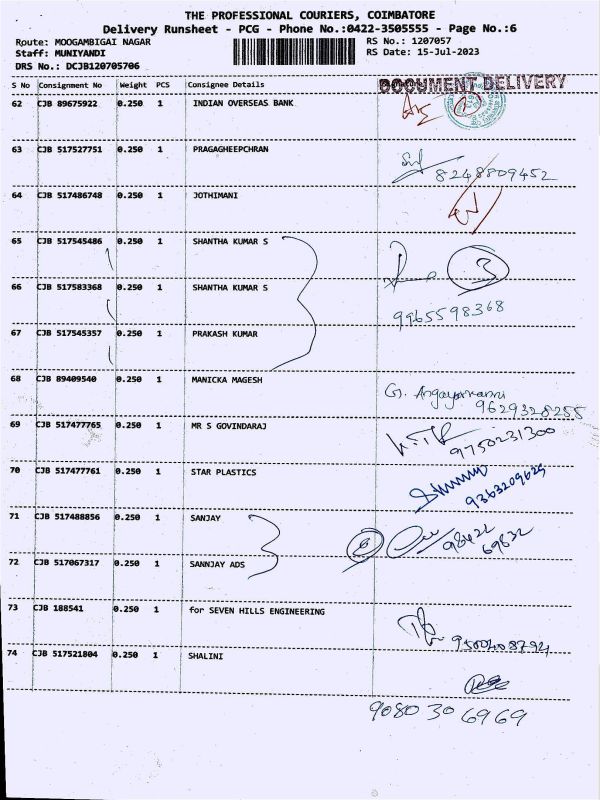 THE PROFESSIONAL COURIERS, COIMBATORE
Delivery Runsheet - PCG - Phone No.:0422-3505555 - Page No.:6
Route: MOOGAMBIGAI NAGAR RS No.: 1207057
Staff: MUNIYANDI RS Date: 15-Jul-2023
DRS No.: DCJB120705706
S No Consignment No Weight PCS Consignee Details DOCUMENT DELIVERY
62 CJB 89675922 0.250 1 INDIAN OVERSEAS BANK
63 CJB 517527751 0.250 1 PRAGAGHEEPCHRAN
8248809452
64 CJB 517486748 0.250 1 JOTHIMANI
65 CJB 517545486 0.250 1 SHANTHA KUMAR S
3
66 CJB 517583368 0.250 1 SHANTHA KUMAR S
9965598368
67 CJB 517545357 0.250 1 PRAKASH KUMAR
68 CJB 89409540 0.250 1 MANICKA MAGESH
9629328255
69 CJB 517477765 0.250 1 MR S GOVINDARAJ
9750231300
70 CJB 517477761 0.250 1 STAR PLASTICS
9363209625
71 CJB 517488856 0.250 1 SANJAY
98422
69832
72 CJB 517067317 0.250 1 SANNJAY ADS
73 CJB 188541 0.250 1 for SEVEN HILLS ENGINEERING
74 CJB 517521804 0.250 1 SHALINI
9080306969